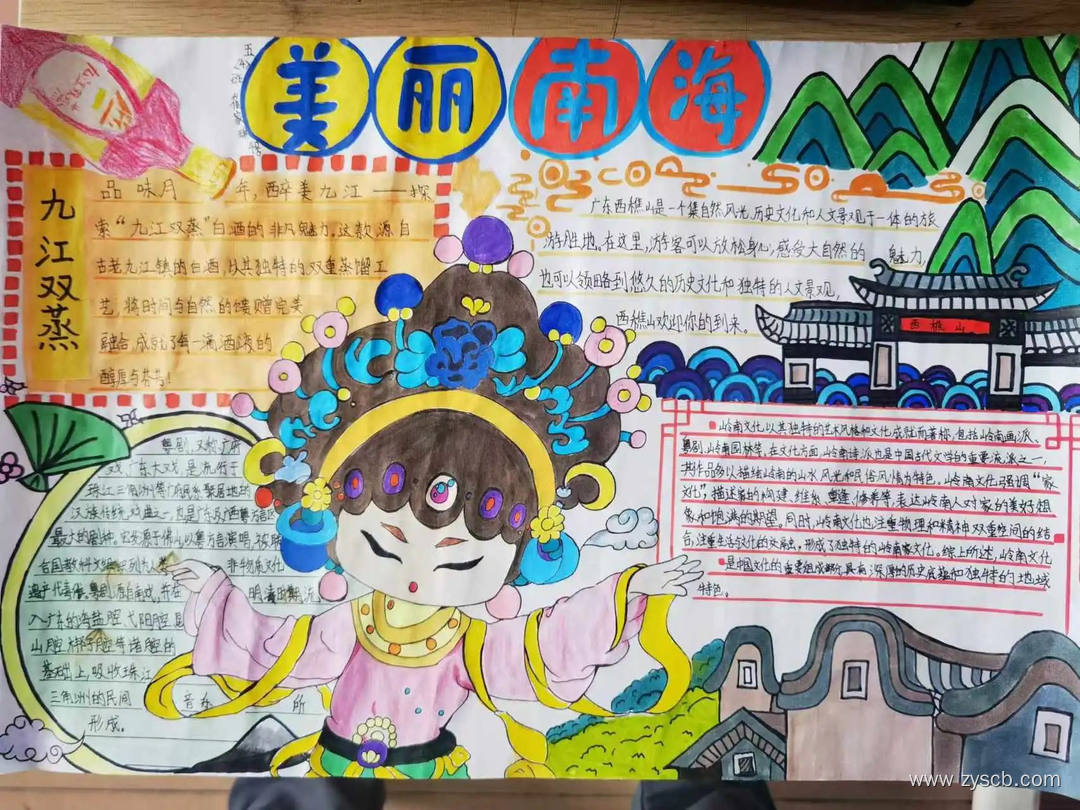 美丽南海
五
九江双蒸
品 味月 年,醉美九江——探
索“九江双蒸”白酒的非凡魅力。这款源自
古老九江镇的白酒,以其独特的双重蒸馏工
艺,将时间与自然的馈赠完美
融合,成就了每一滴酒液的
醇厚与芬芳!
广东西樵山是一个集自然风光,历史文化和人文景观于一体的旅
游胜地。在这里,游客可以放松身心,感受大自然的 魅力,
也可以领略到悠久的历史文化和独特的人文景观,
西樵山欢迎你的到来。
西樵山
粤剧,又称广府
戏,广东大戏,是流行于
珠江三角洲等广府民系聚居地的
汉族传统戏曲之一,也是广东及广西粤语区
最大的剧种。它发源于佛山以粤方言演唱,被
非物质文化
遗产代表作。粤剧,源自南戏,
明清时期流
入广东的海盐腔、弋阳腔、昆
山腔、梆子腔等诸腔的
基础上,吸收珠江
三角洲的民间 音乐 所
形成。
岭南文化以其独特的艺术风格和文化成就而著称,包括岭南画派、
粤剧、岭南园林等,在文化方面,岭南诗派也是中国古代文学的重要流派之一,
其作品多以描绘岭南的山水风光和民俗风情为特色。岭南文化强调“家
文化”,描述家的构建、维系、重建、修养等,表达岭南人对家的美好想
象和饱满的期望。同时,岭南文化也注重物理和精神双重空间的结
合,注重生活文化的交融,形成了独特的岭南家文化。综上所述,岭南文化
是中国文化的重要组成部分,具有深厚的历史底蕴和独特的地域
特色。
www.zyscb.com